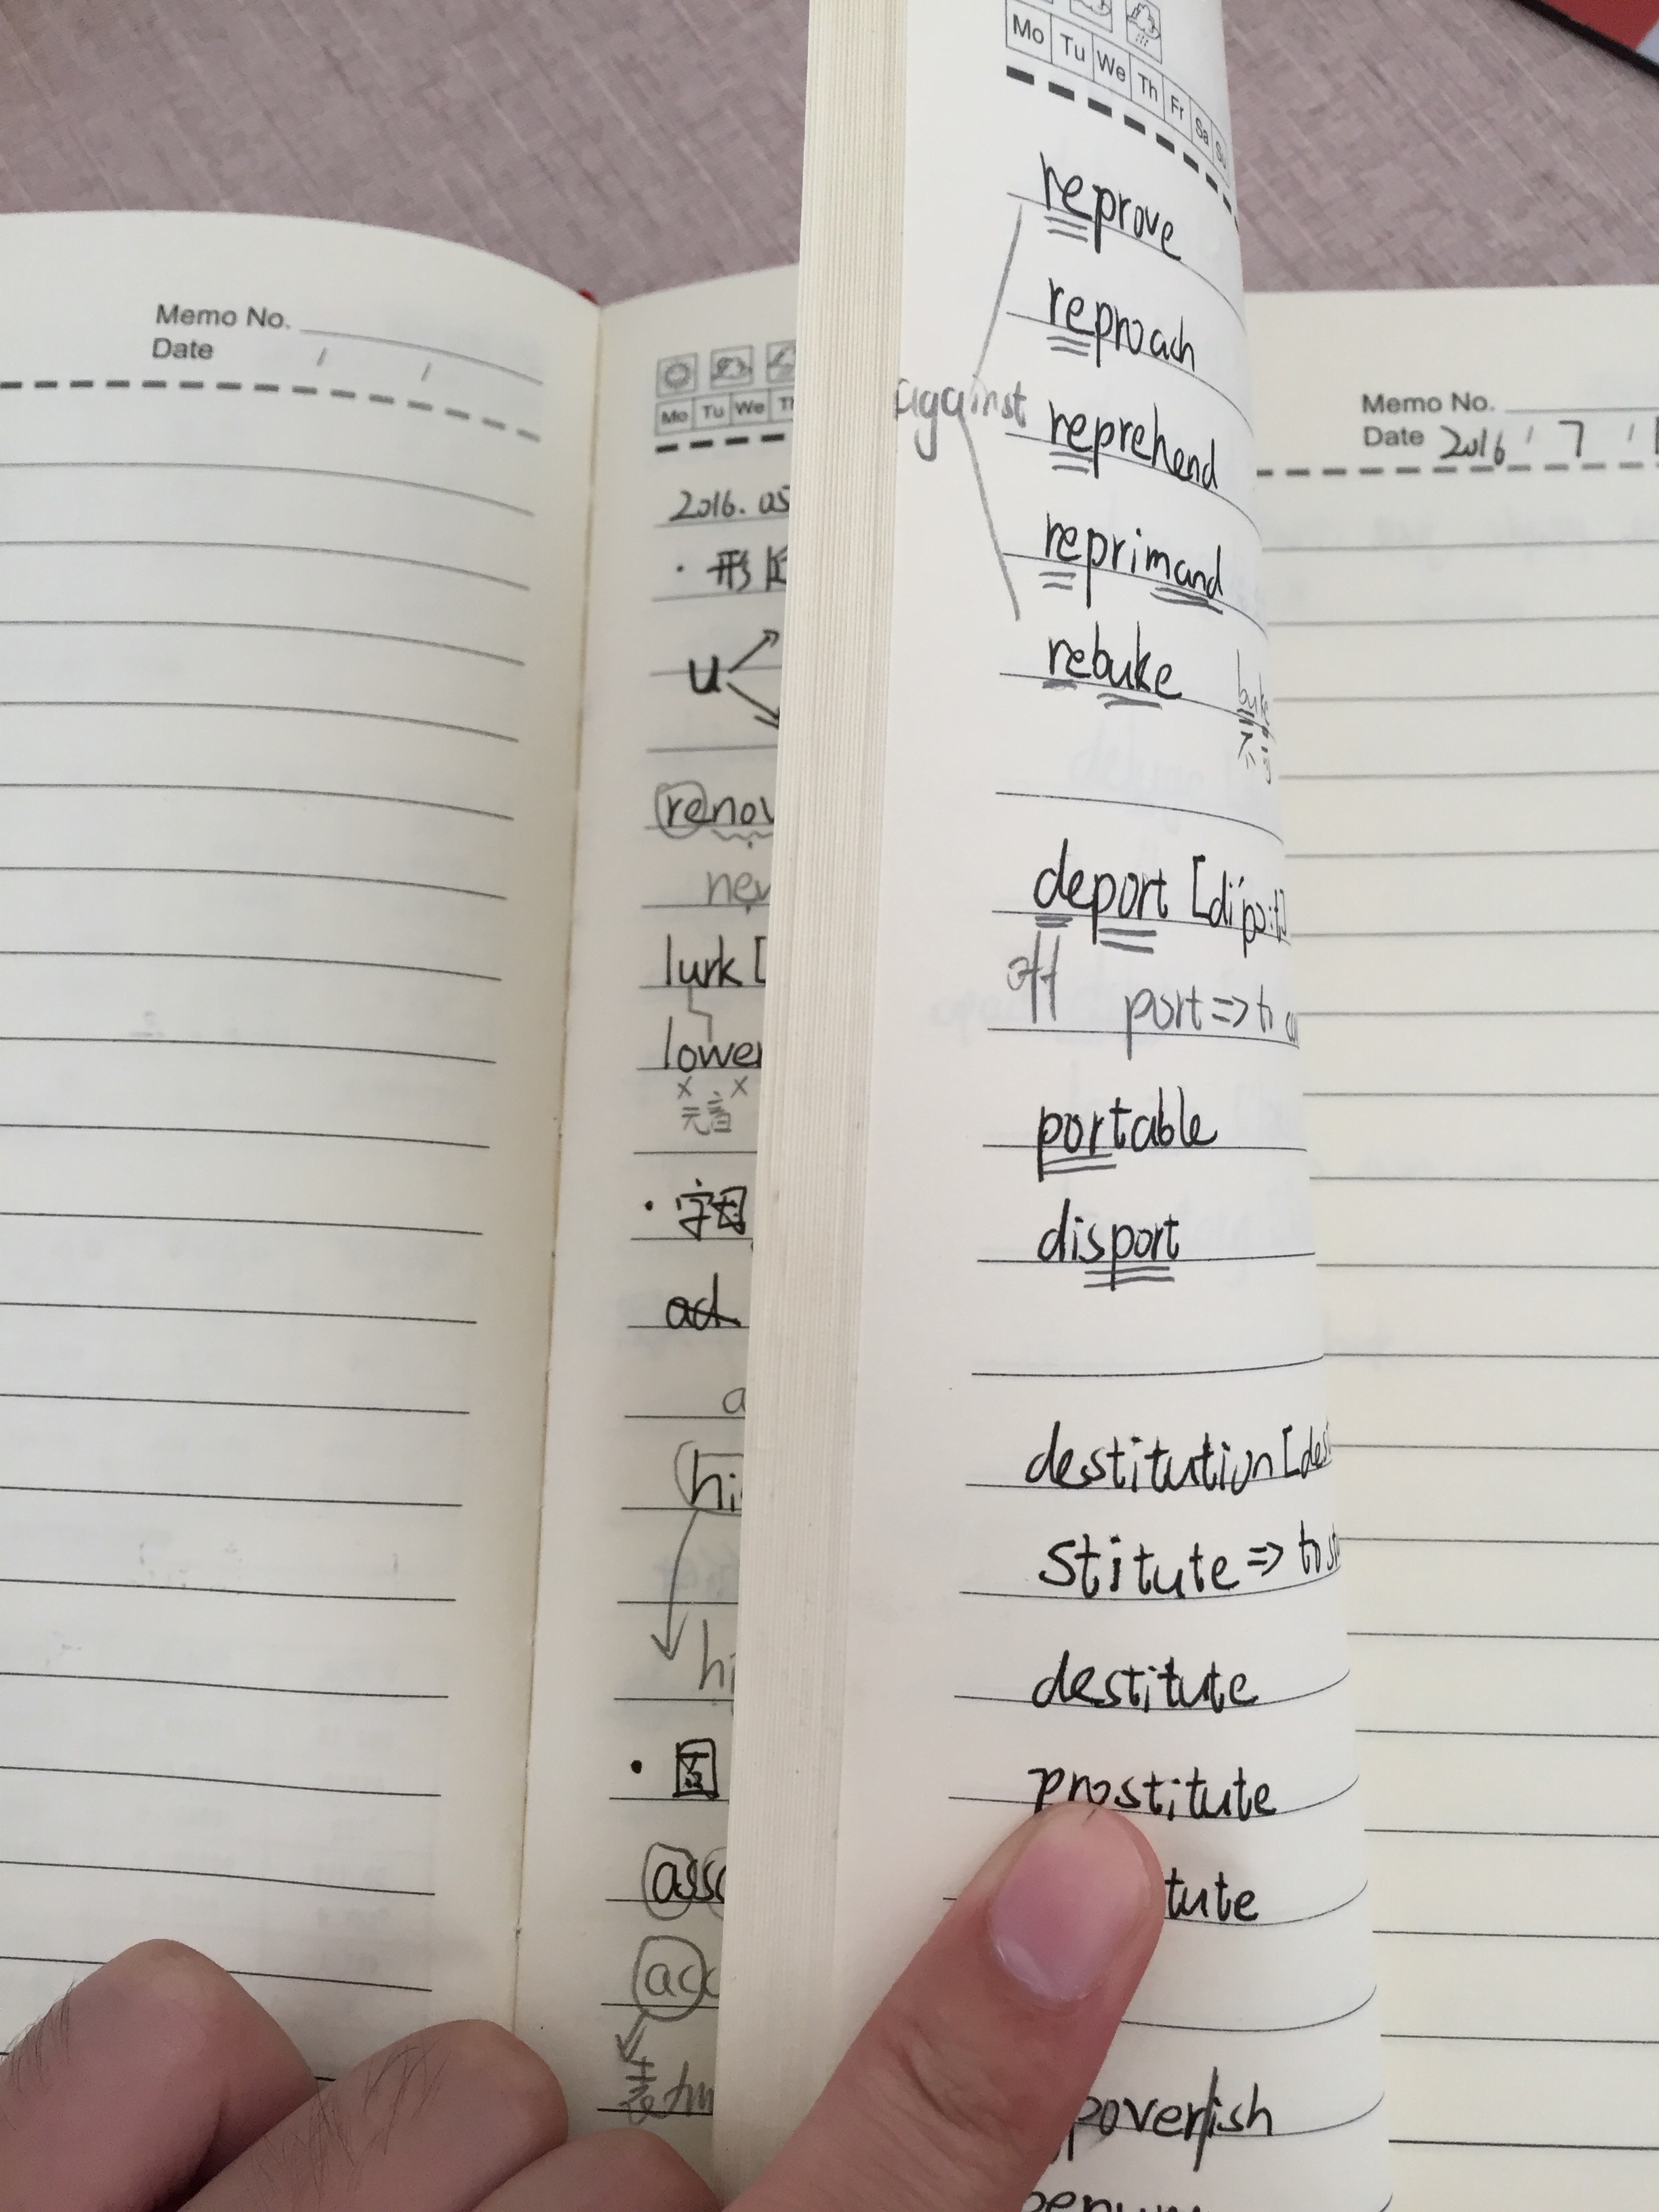 Memo No.
Date / /
Mo Tu We
2016.05
· 形
u
renov
new
lurk [
lower
x x
元音
· 字母
ad
a
hi
hi
·
asso
acc
表
Mo Tu We Th Fr Sa Su
reprove
reproach
against
reprehend
reprimand
rebuke
buke
deport [di'pɔ:t]
off
port => to
portable
disport
destitution [des
stitute => to st
destitute
prostitute
tute
poverish
Memo No.
Date 2016 / 7 /